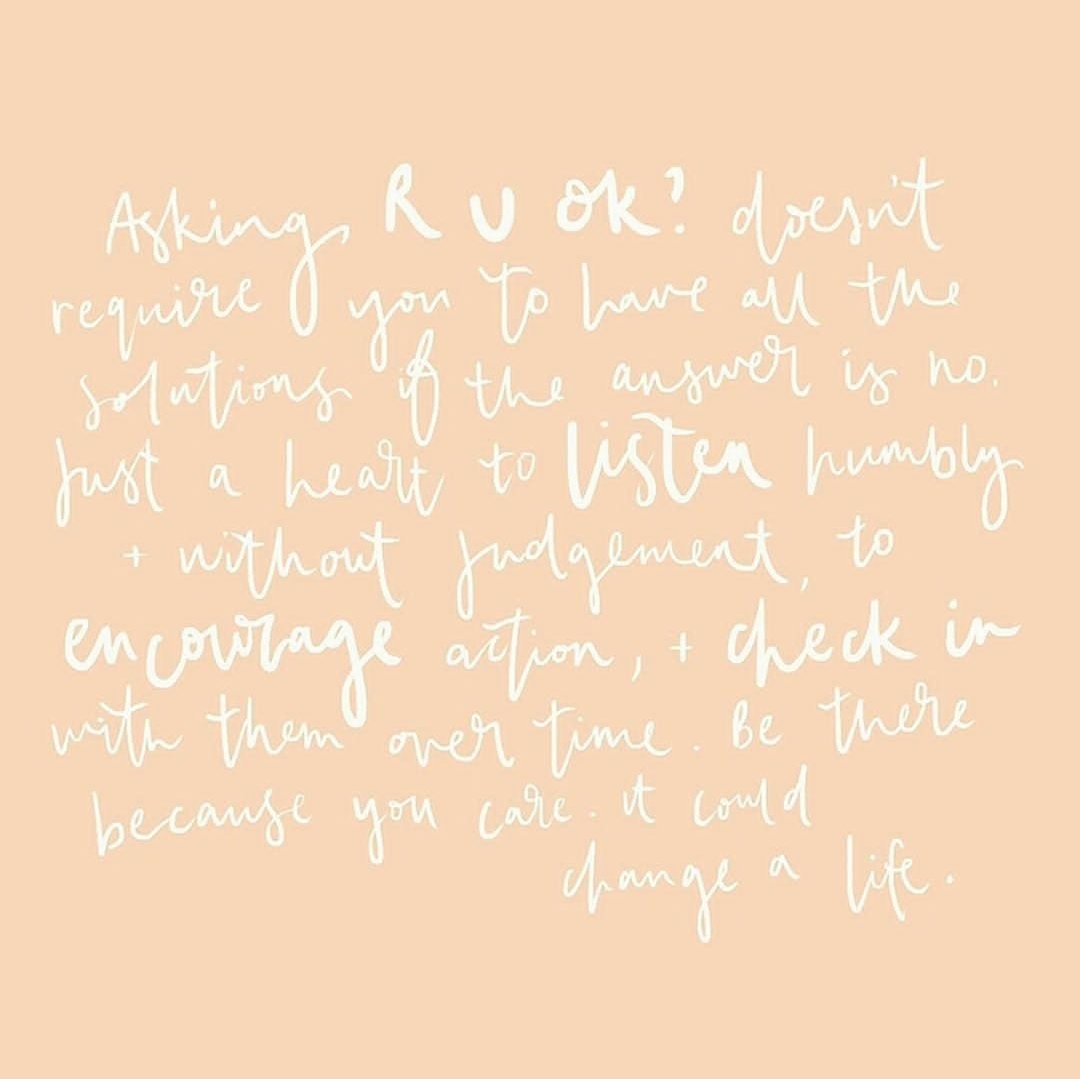 Asking R U OK? doesn't
require you to have all the
solutions if the answer is no.
Just a heart to listen humbly
+ without judgement, to
encourage action, + check in
with them over time. Be there
because you care. it could
change a life.